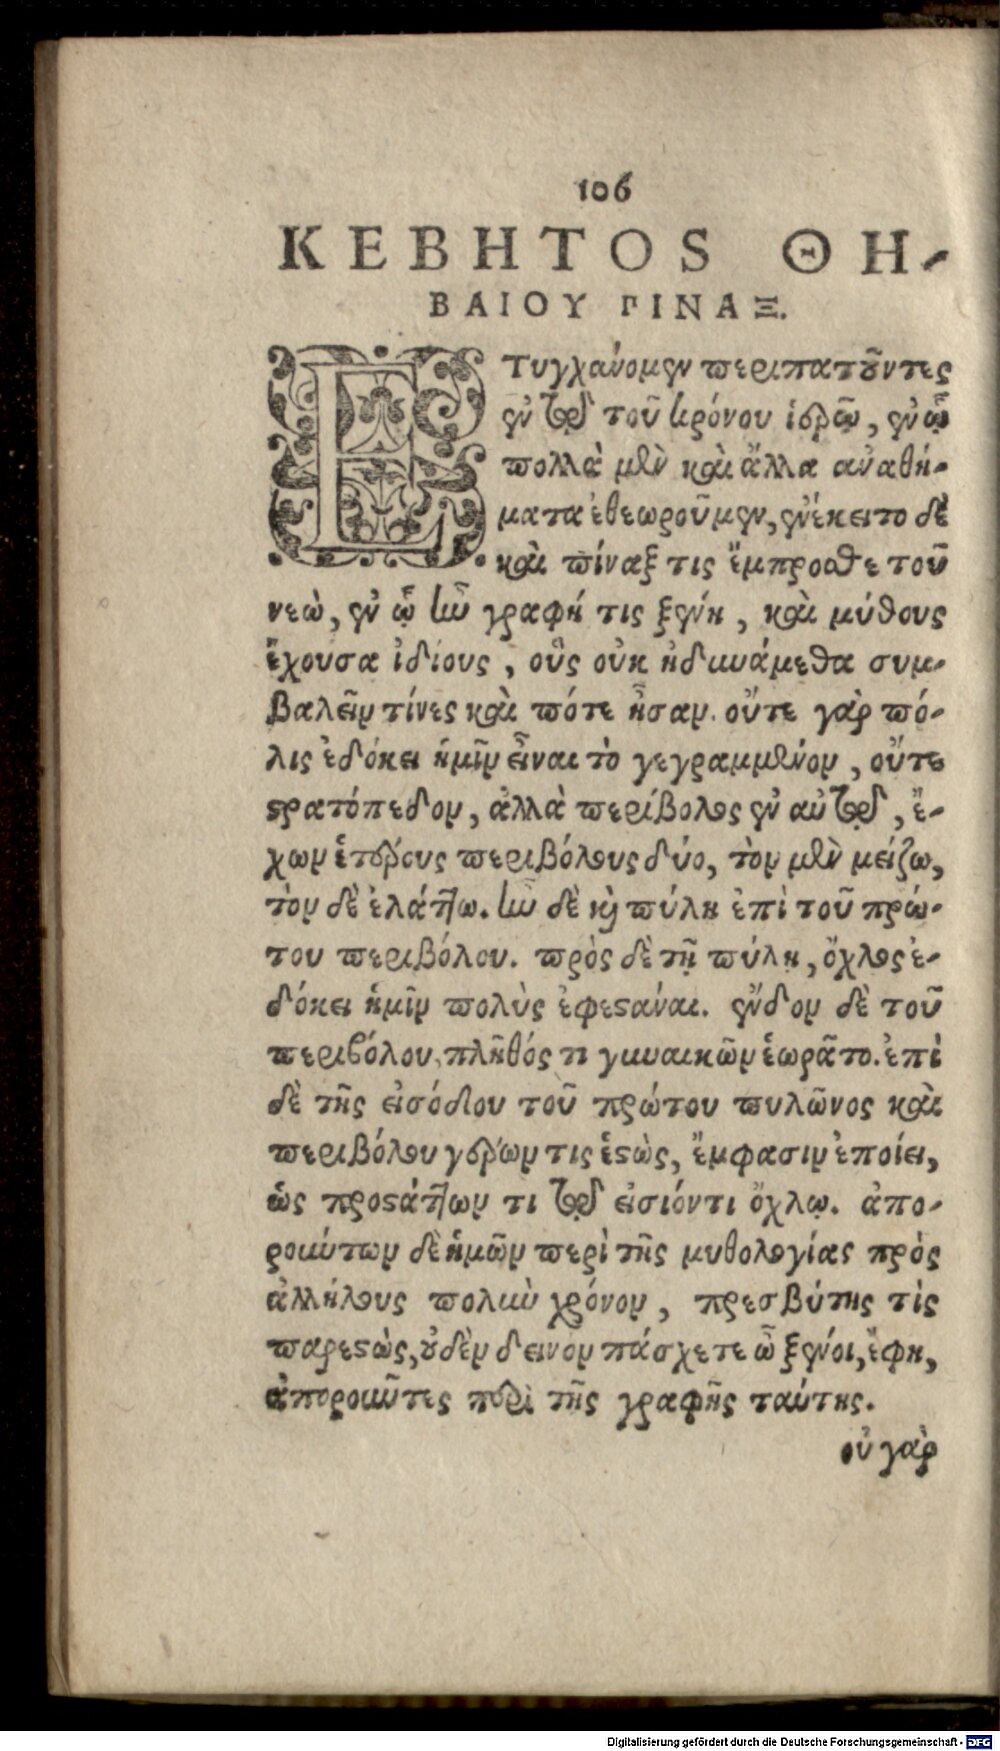 106
ΚΕΒΗΤΟS ΘΗ-
ΒΑΙΟΥ ΠΙΝΑΞ.
ΕΤυγχάνομεν περιπατοῦντες
ἐν τῷ τοῦ κρόνου ἱερῷ, ἐν ᾧ
πολλὰ μὲν καὶ ἄλλα ἀναθή-
ματα ἐθεωροῦμεν, ἐνέκειτο δὲ
καὶ πίναξ τις ἔμπροσθε τοῦ
νεὼ, ἐν ᾧ ἦν γραφή τις ξένη, καὶ μύθους
ἔχουσα ἰδίους, οὓς οὐκ ἠδυνάμεθα συμ-
βαλεῖν τίνες καὶ πότε ἦσαν. οὔτε γὰρ πό-
λις ἐδόκει ἡμῖν εἶναι τὸ γεγραμμένον, οὔτε
στρατόπεδον, ἀλλὰ περίβολος ἐν αὑτῷ, ἔ-
χων ἑτέρους περιβόλους δύο, τὸν μὲν μείζω,
τὸν δὲ ἐλάττω. ἦν δὲ καὶ πύλη ἐπὶ τοῦ πρώ-
του περιβόλου. πρὸς δὲ τῇ πύλῃ, ὄχλος ἐ-
δόκει ἡμῖν πολὺς ἐφεστάναι. ἔνδον δὲ τοῦ
περιβόλου, πλῆθός τι γυναικῶν ἑωρᾶτο. ἐπὶ
δὲ τῆς εἰσόδου τοῦ πρώτου πυλῶνος καὶ
περιβόλου γέρων τις ἑστὼς, ἔμφασιν ἐποίει,
ὡς προστάττων τι τῷ εἰσιόντι ὄχλῳ. ἀπο-
ρούντων δὲ ἡμῶν περὶ τῆς μυθολογίας πρὸς
ἀλλήλους πολὺν χρόνον, πρεσβύτης τὶς
παρεστὼς, οὐδὲν δεινον πάσχετε ὦ ξένοι, ἔφη,
ἀποροῦντες περὶ τῆς γραφῆς ταύτης.
οὐ γὰρ
Digitalisierung gefördert durch die Deutsche Forschungsgemeinschaft - DFG